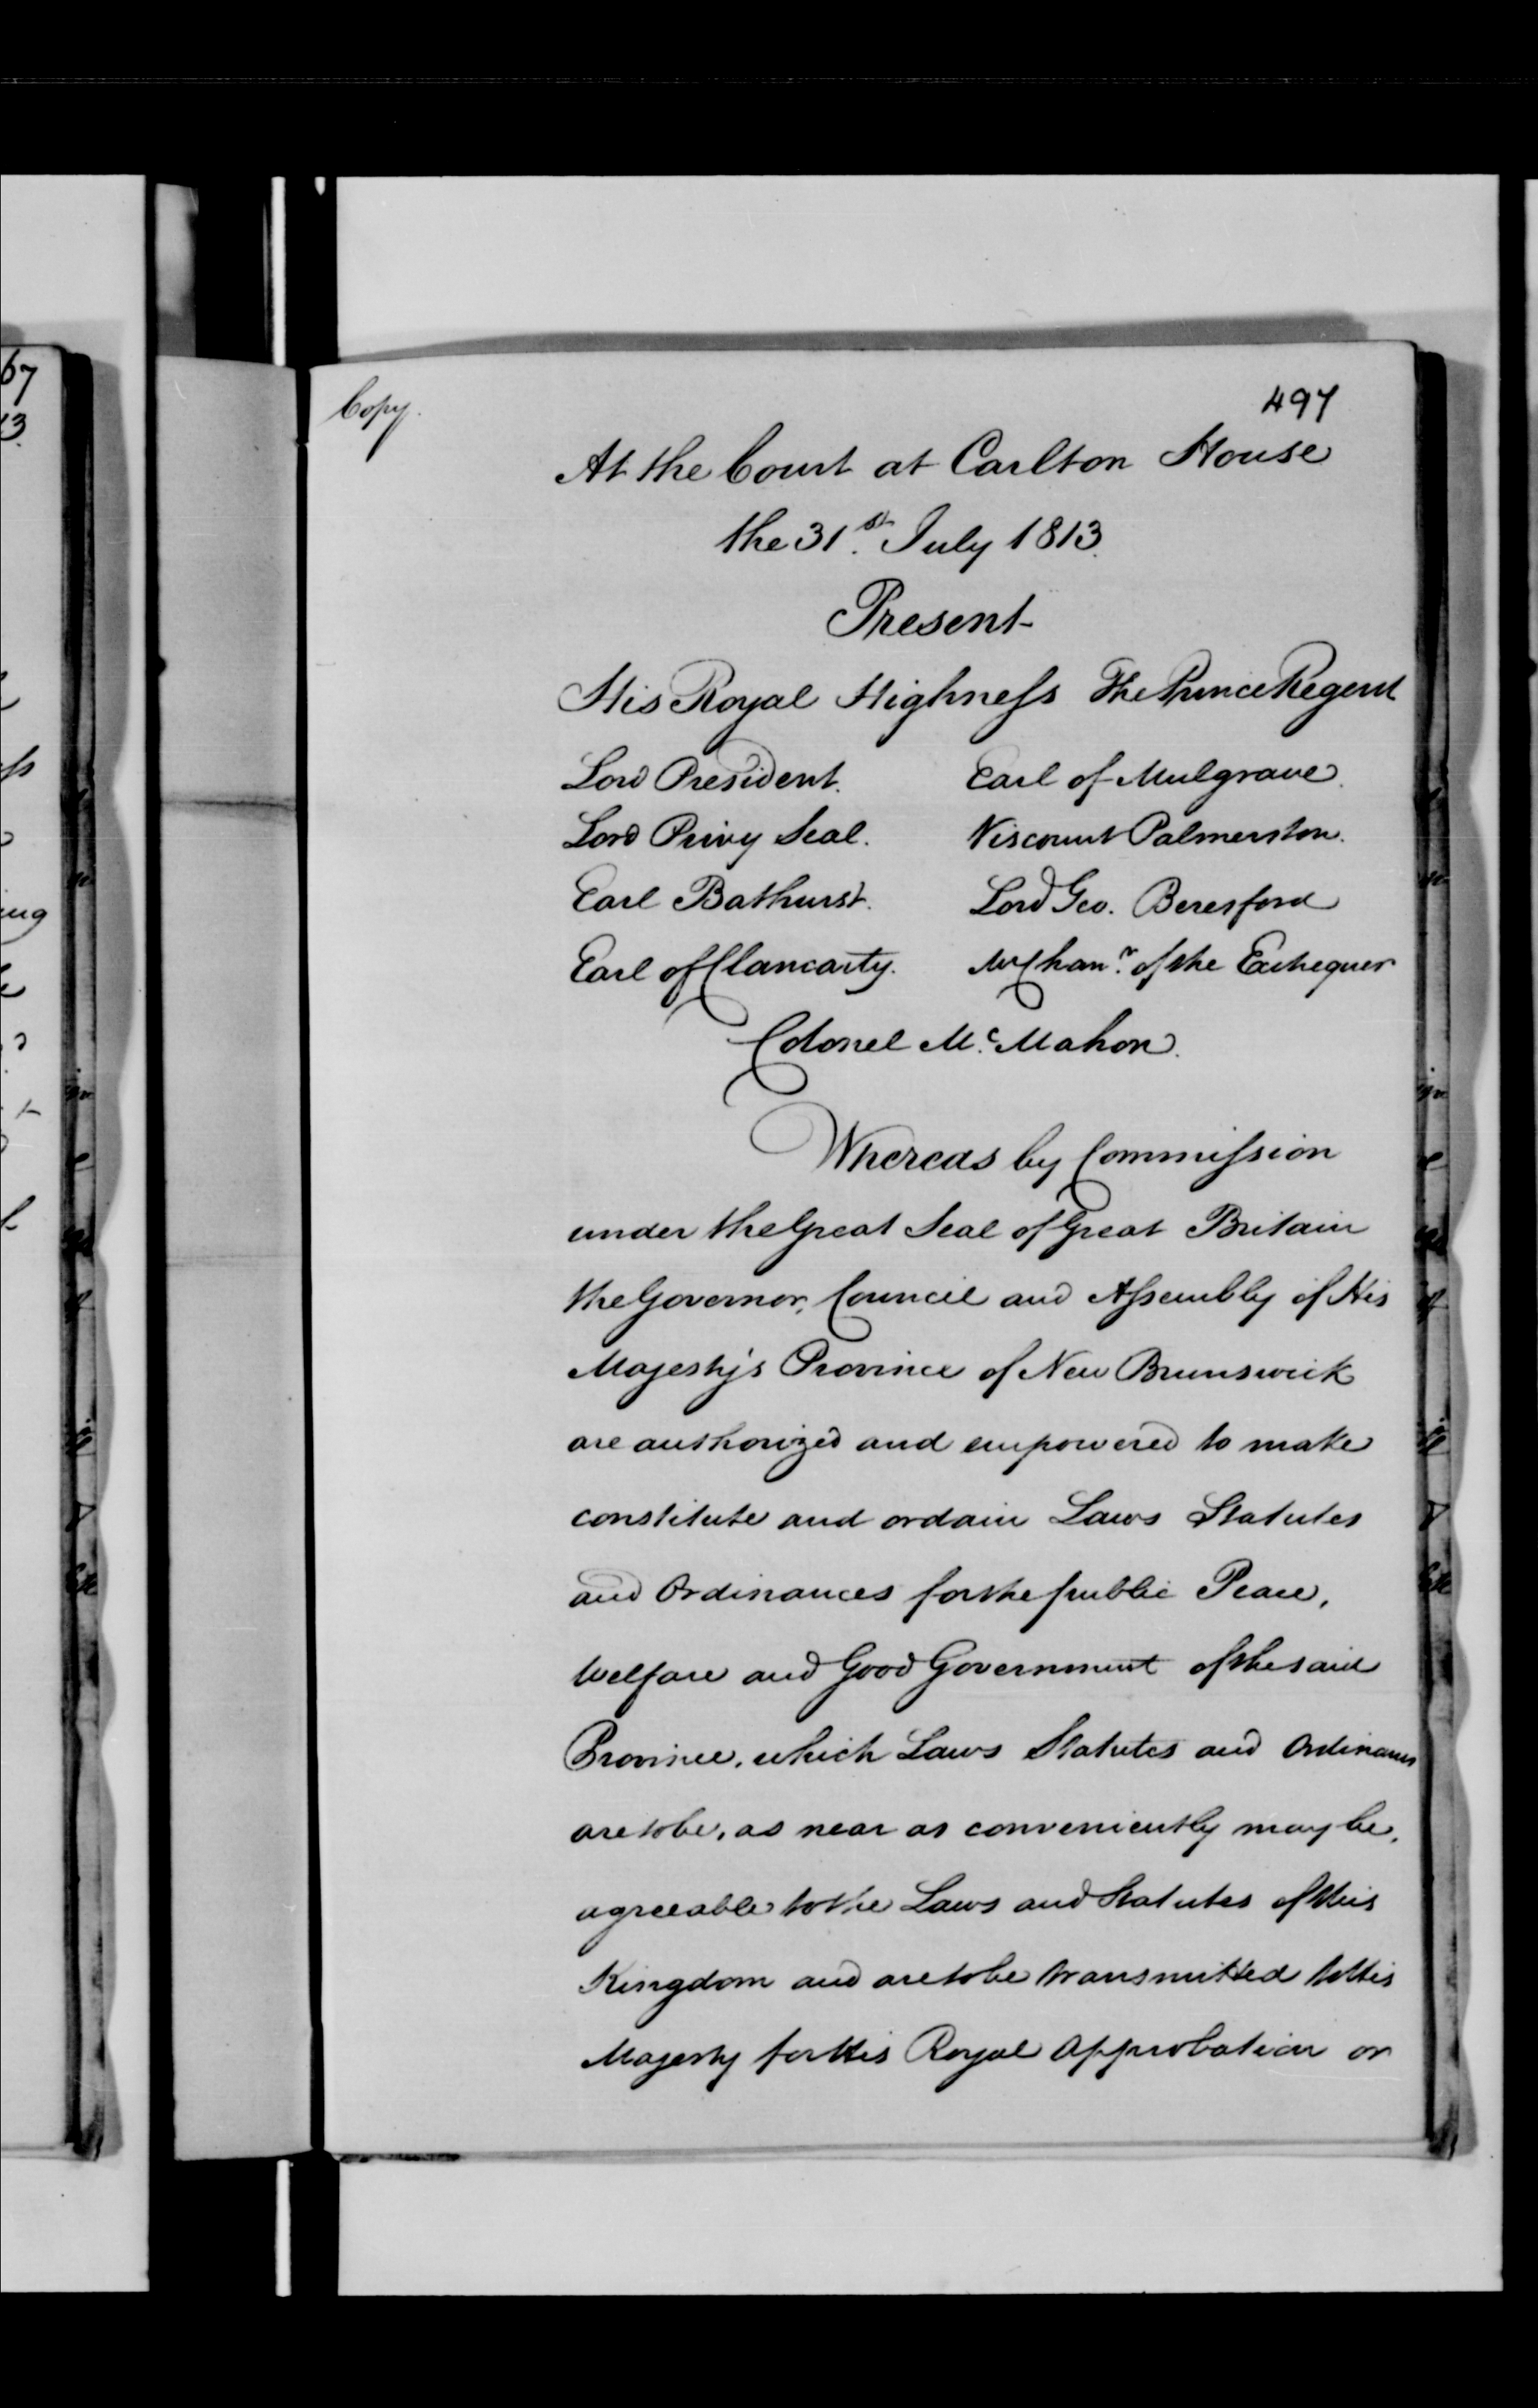 Copy.
497
At the Court at Carlton House
the 31st. July 1813.
Present
His Royal Highness The Prince Regent
Lord President. Earl of Mulgrave.
Lord Privy Seal. Viscount Palmerston.
Earl Bathurst. Lord Geo. Beresford
Earl of Clancarty. Mr Chanr. of the Exchequer
Colonel Mc. Mahon.
Whereas by Commission
under the Great Seal of Great Britain
the Governor, Council and Assembly of His
Majesty's Province of New Brunswick
are authorized and empowered to make
constitute and ordain Laws Statutes
and Ordinances for the public Peace,
Welfare and Good Government of the said
Province, which Laws Statutes and Ordinances
are to be, as near as conveniently may be,
agreeable to the Laws and Statutes of this
Kingdom and are to be transmitted to His
Majesty for His Royal Approbation or